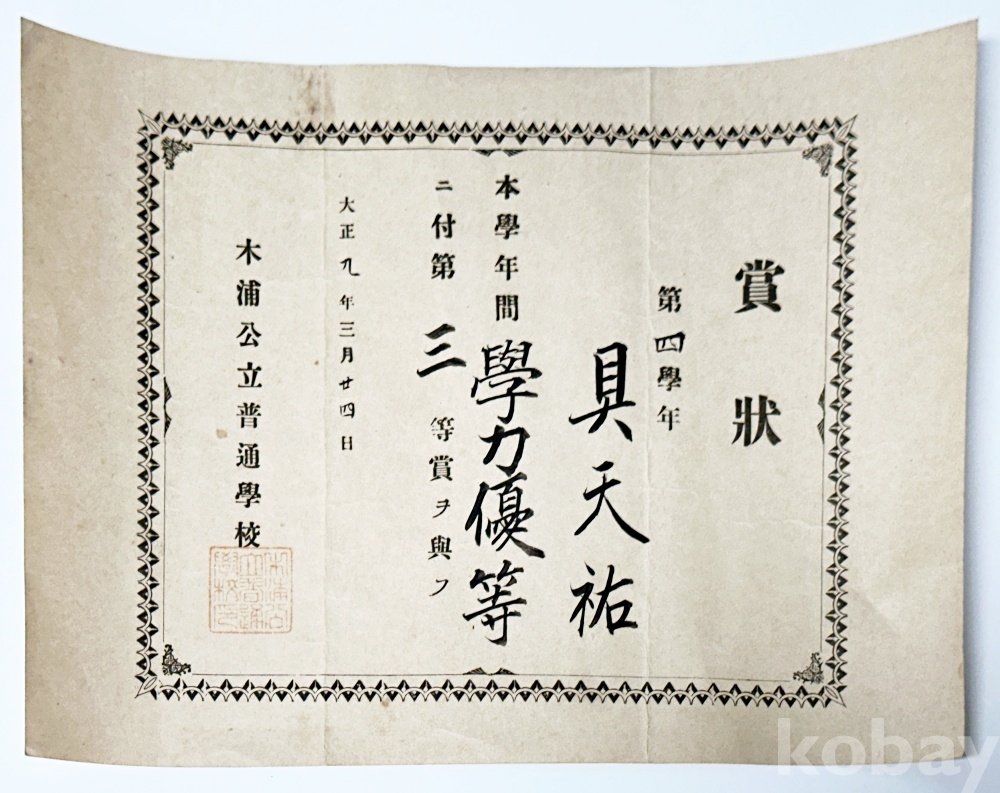 賞狀
第四學年
具天祐
本學年間學力優等
ニ付第三等賞ヲ與フ
大正九年三月廿四日
木浦公立普通學校
木浦公立普通學校印
kobay